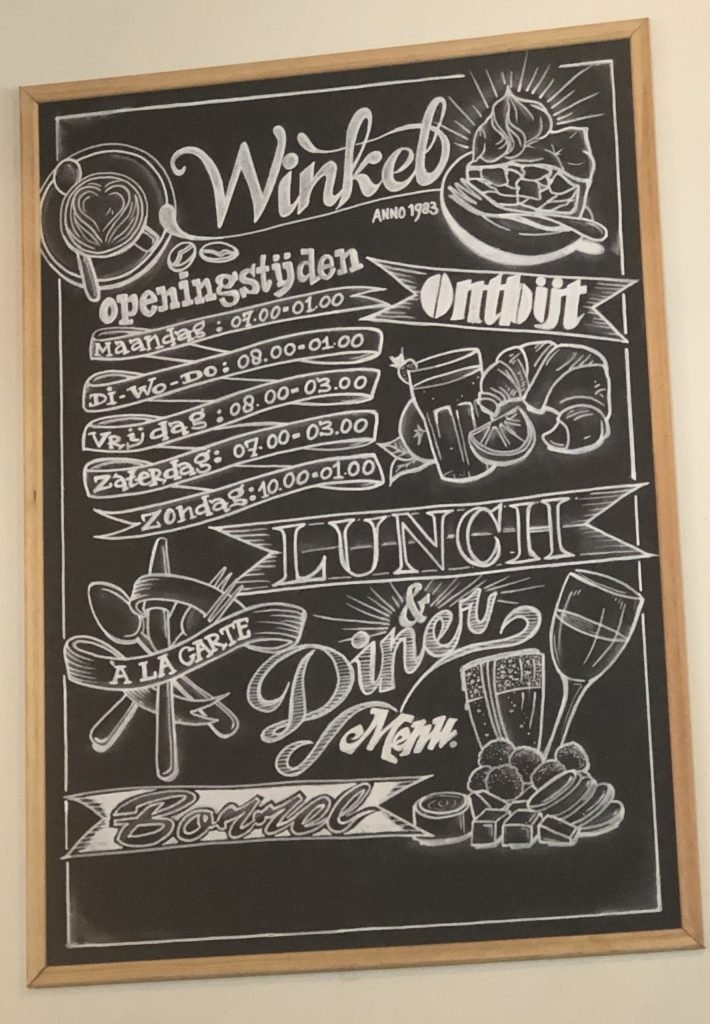 Winkel
ANNO 1983
openingstijden
Maandag : 07.00-01.00
Di-Wo-Do : 08.00-01.00
Vrijdag : 08.00-03.00
Zaterdag: 07.00-03.00
Zondag: 10.00-01.00
Ontbijt
LUNCH
À LA CARTE
&
Diner
Menu.
Borrel